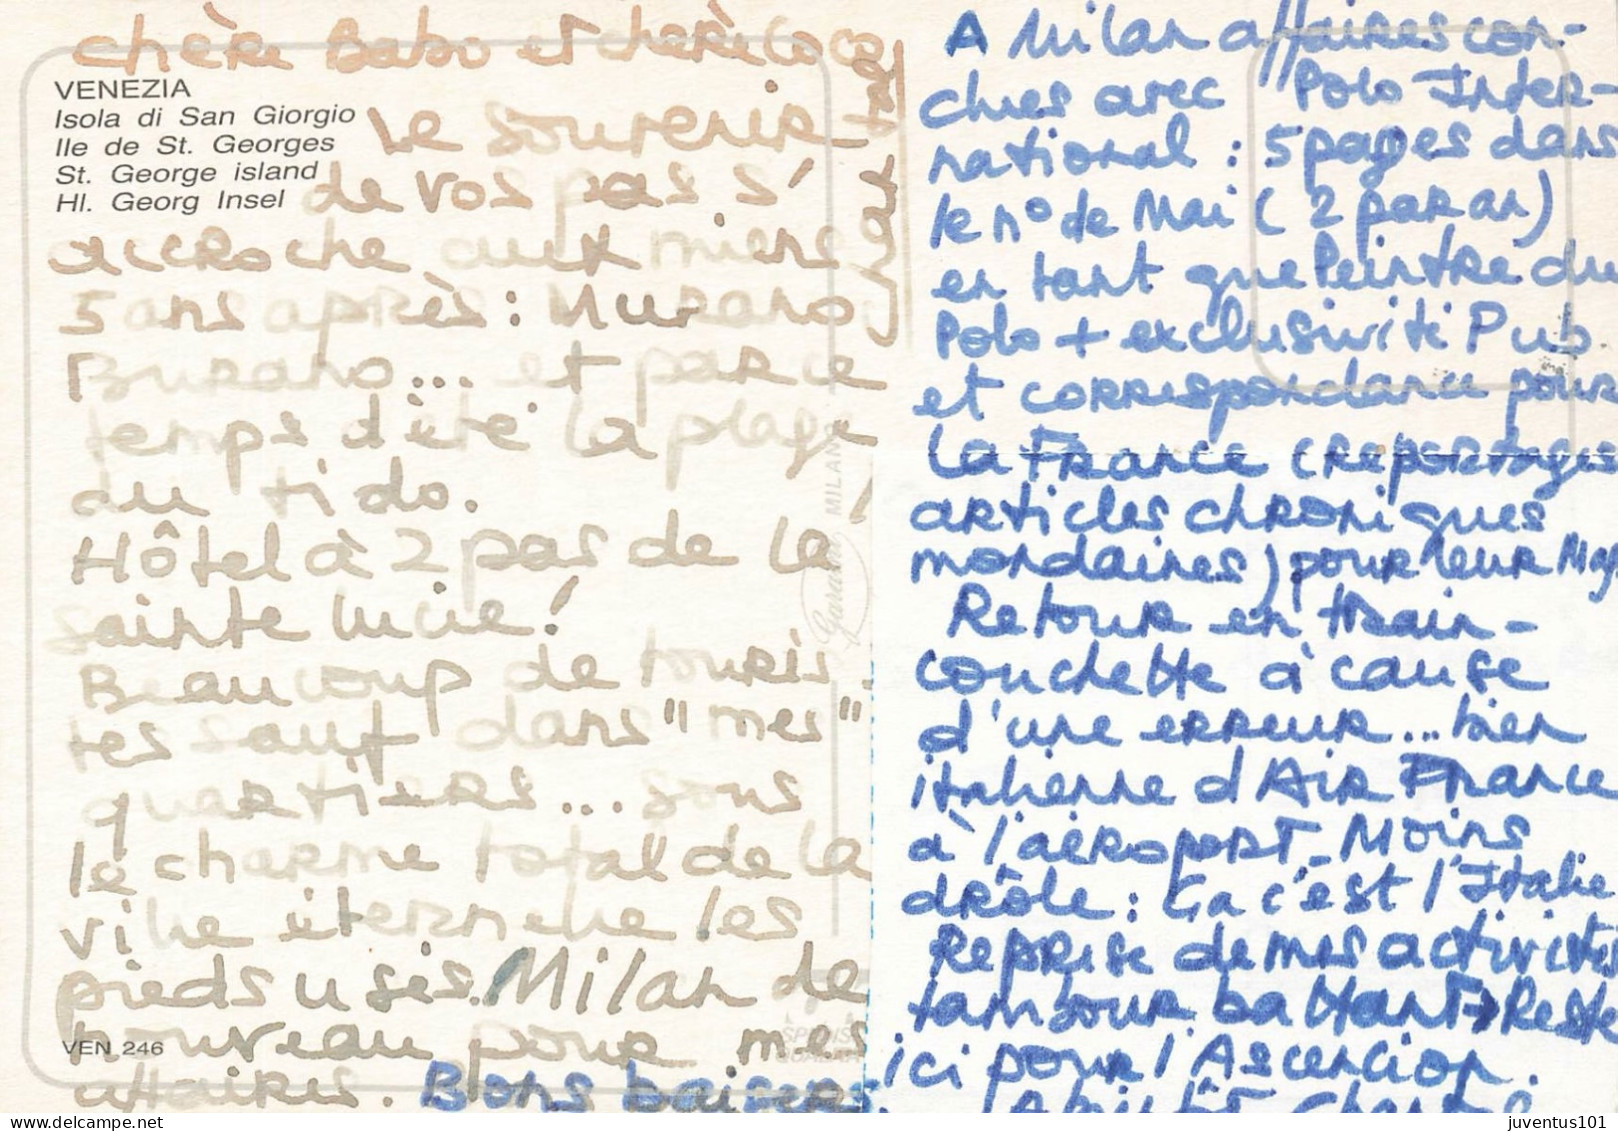 chère Babo et chère Coco
VENEZIA
Isola di San Giorgio
Ile de St. Georges
St. George island
Hl. Georg Insel
Le souvenir
de vos pas s'
accroche aux miens
5 ans après : Murano
Burano... et par ce
temps d'été la plage
du Lido.
Hôtel à 2 pas de la
Sainte Lucie !
Beaucoup de touris
tes sauf dans "mes"
quartiers... sous
le charme total de la
ville éternelle les
pieds usés. Milan de
nouveau pour mes
affaires. Bons baisers
VEN 246
Garami MILANO
A Milan affaires con-
clues avec Polo Inter-
national : 5 pages dans
le n° de Mai (2 par an)
en tant que Peintre du
Polo + exclusivité Pub.
et correspondance pour
la France (reportages
articles chroniques
mondaines) pour leur Mag
Retour en train-
couchette à cause
d'une erreur... bien
italienne d'Air France
à l'aéroport_ Moins
drôle : Ca c'est l'Italie
Reprise de mes activités
tambour battant. Reste
ici pour l'Ascension.
juventus101